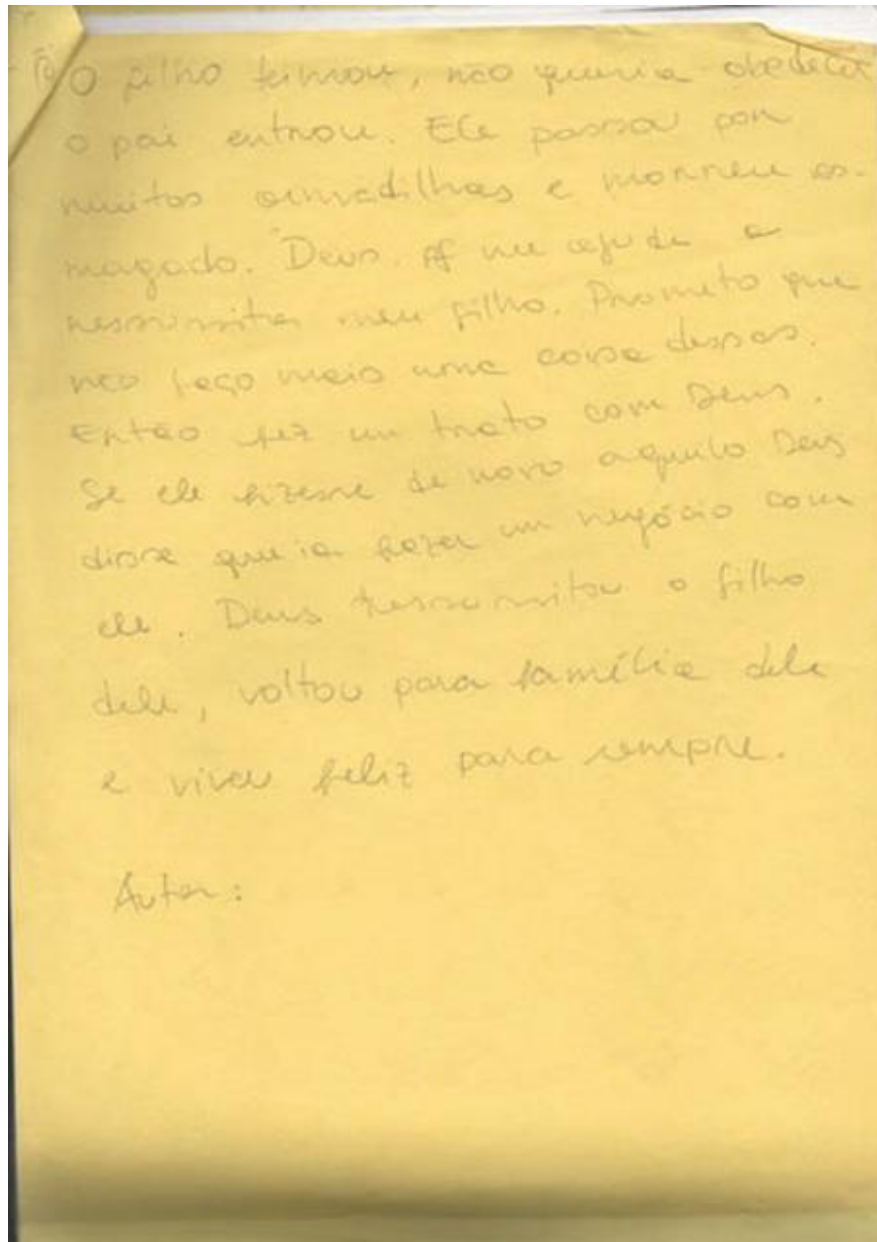 O filho teimou, não queria obedecer
o pai entrou. Ele passou por
muitas armadilhas e morreu es-
magado. Deus me ajude a
ressussitar meu filho. Prometo que
não faço mais uma coisa dessas.
Então fez um trato com Deus.
Se ele fizesse de novo aquilo Deus
disse que ia fazer um negócio com
ele. Deus ressussitou o filho
dele, voltou para família dele
e viveu feliz para sempre.
Autor: